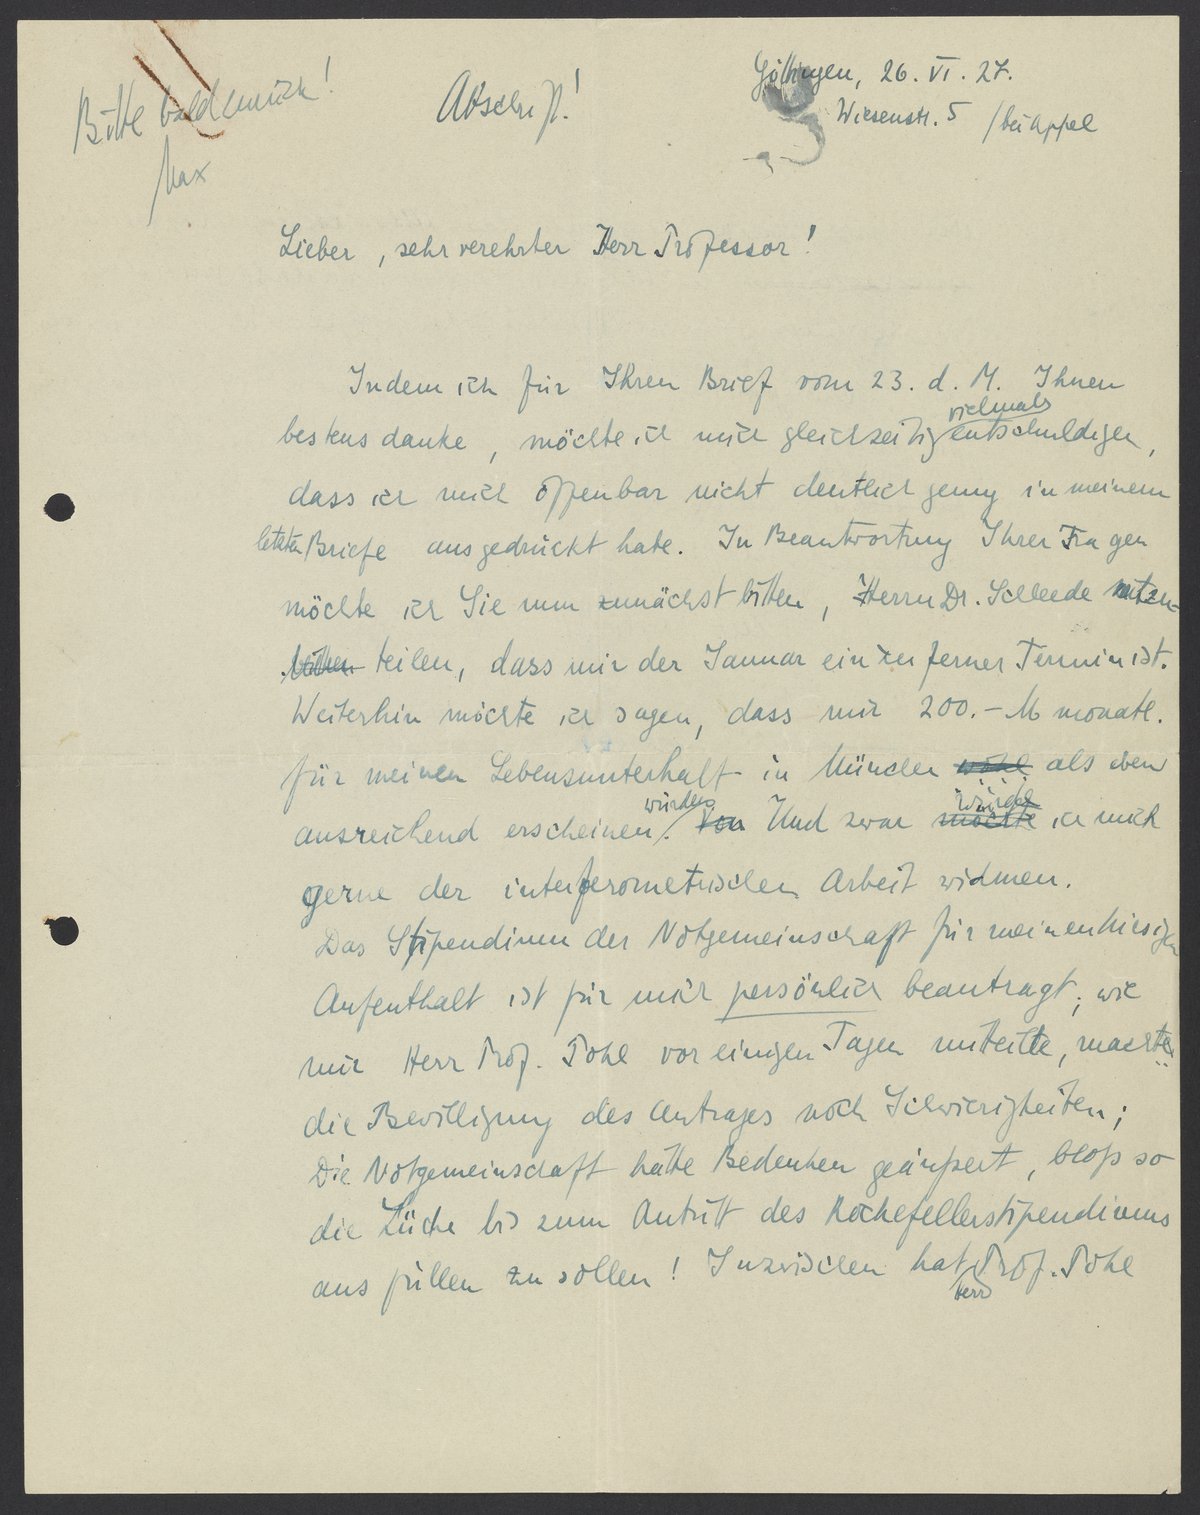 Bitte bald zurück!
Max
Abschrift!
Göttingen, 26. VI. 27.
Wiesenstr. 5 / bei Appel
Lieber, sehr verehrter Herr Professor!
Indem ich für Ihren Brief vom 23. d. M. Ihnen
vielmals
bestens danke, möchte ich mich gleichzeitig entschuldigen,
dass ich mich offenbar nicht deutlich genug in meinem
letzten Briefe ausgedrückt habe. In Beantwortung Ihrer Fragen
möchte ich Sie nun zunächst bitten, Herrn Dr. Scheede mitzu-
teilen, dass mir der Januar ein zu ferner Termin ist.
Weiterhin möchte ich sagen, dass mir 200.- M monatl.
für meinen Lebensunterhalt in München wohl als eben
würden würde
ausreichend erscheinen. Von Und zwar möchte ich mich
gerne der interferometrischen Arbeit widmen.
Das Stipendium der Notgemeinschaft für meinen hiesigen
Aufenthalt ist für mich persönlich beantragt; wie
mir Herr Prof. Pohl vor einigen Tagen mitteilte, machte
die Bewilligung des Antrages noch Schwierigkeiten;
Die Notgemeinschaft hätte Bedenken geäußert, bloß so
die Lücke bis zum Antritt des Rockefellerstipendiums
ausfüllen zu sollen! Inzwischen hat Prof. Pohl
Herr